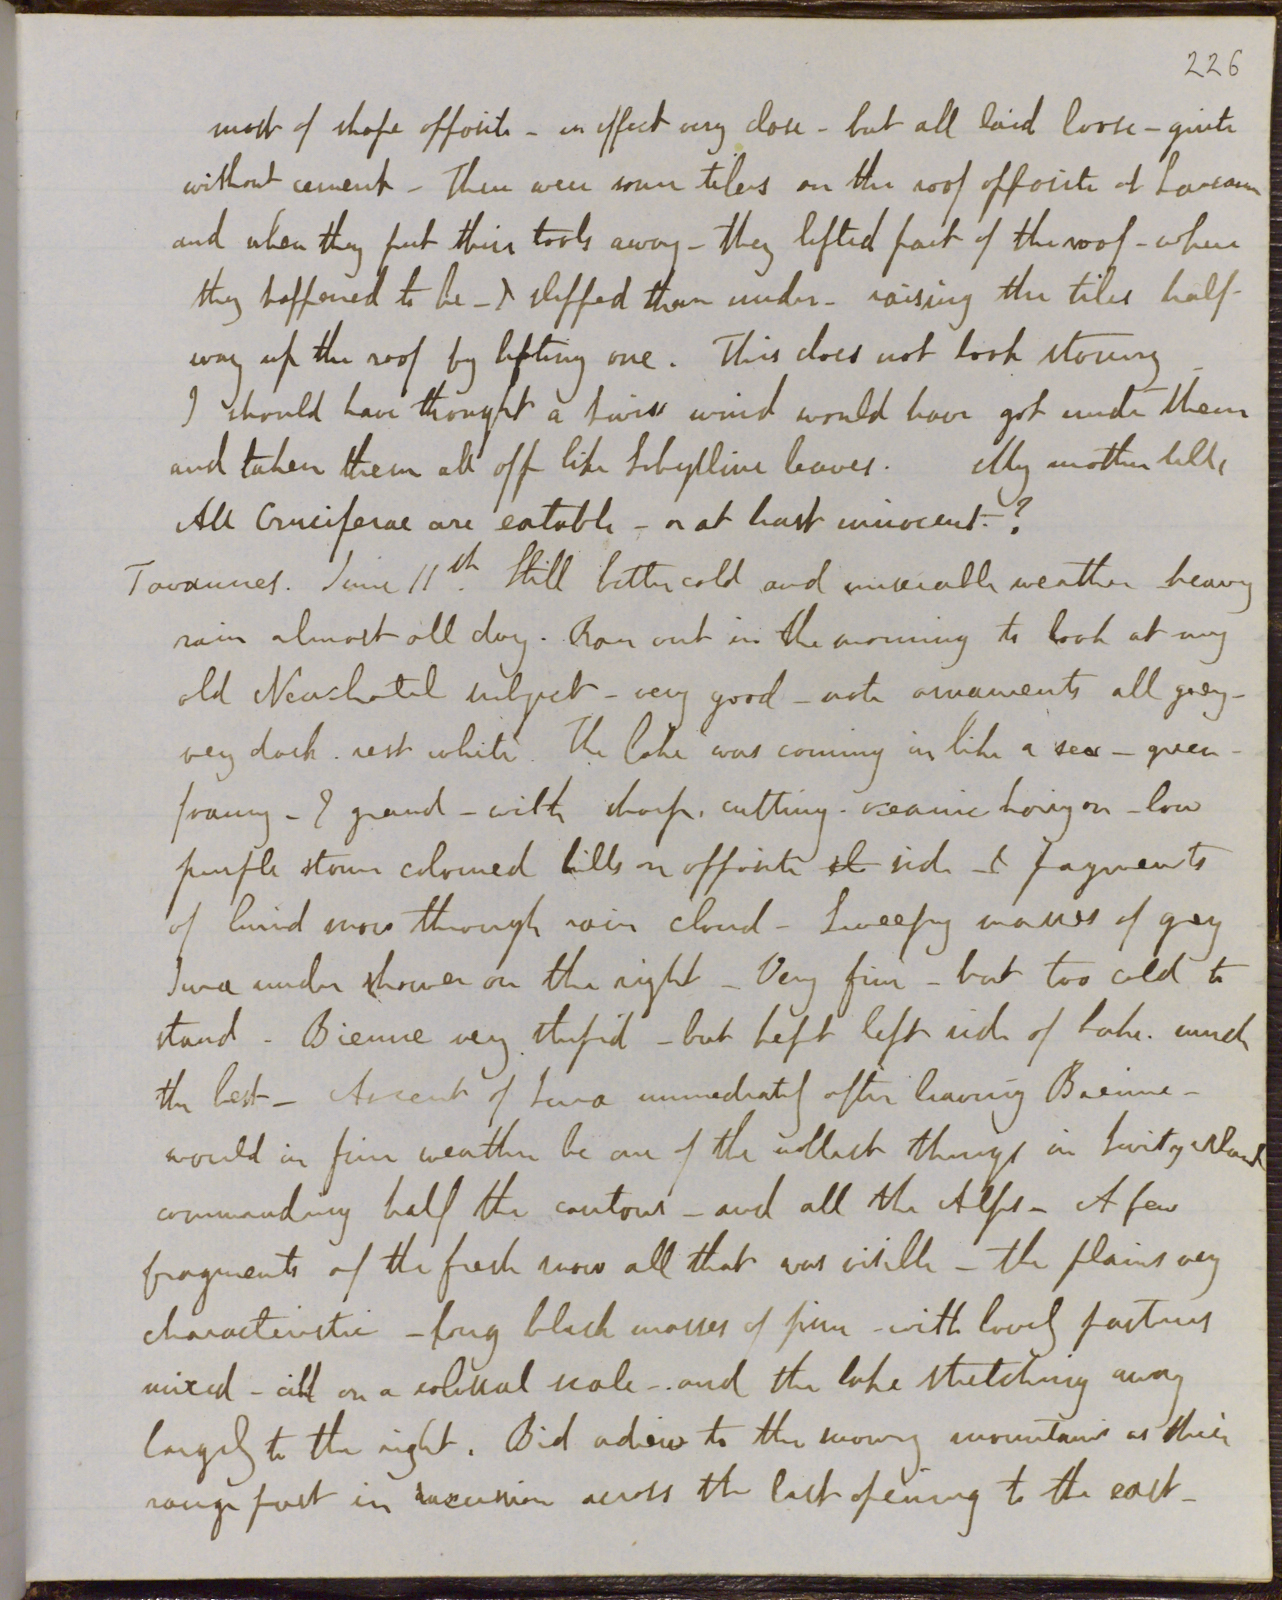 226
most of shape opposite - in effect very close - but all laid loose - quite
without cement - There were some tilers on the roof opposite at Lausanne
and when they put their tools away - they lifted part of the roof - where
they happened to be - & slipped them under - raising the tiles half-
way up the roof by lifting one. This does not look stormy -
I should have thought a Swiss wind would have got under them
and taken them all off like Sibylline leaves. My mother tells,
All Cruciferae are eatable - or at least innocent.?
Tavannes. June 11th. Still bitter cold and miserable weather heavy
rain almost all day. Ran out in the morning to look at my
old Neuchatel subject - very good - note ornaments all grey -
very dark. rest white. The lake was coming in like a sea - green -
foamy - & grand - with sharp. cutting. oceanic horizon - low
purple storm coloured hills on opposite side - & fragments
of lurid snow through rain cloud - Sweepg masses of grey
Jura under shower on the right - Very fine - but too cold to
stand - Bienne very stupid - but kept left side of lake. much
the best - Ascent of Jura immediately after leaving Bienne -
would in fine weather be one of the noblest things in Switzerland
commanding half the cantons - and all the Alps - A few
fragments of the fresh snow all that was visible - the plains very
characteristic - long black masses of pine - with lovely pastures
mixed - all on a colossal scale - and the lake stretching away
largely to the right. Bid adieu to the snowy mountains as their
range past in succession across the last opening to the east -